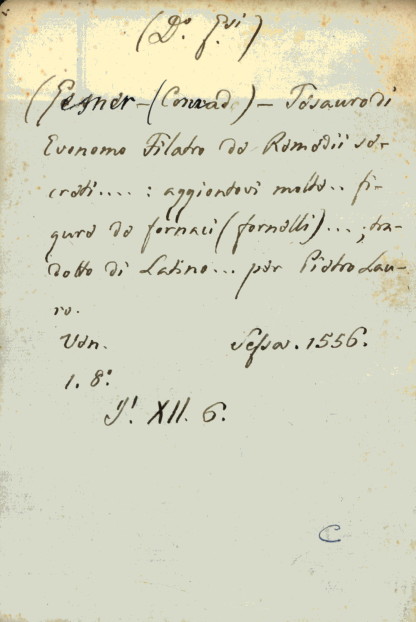 (Do. Fsi)
(Gesner-(Conrad)- Tesauro di
Evonomo Filatro de Remedii se-
creti....: aggiontovi molte.. fi-
gure de fornaci (fornelli)...; tra-
dotto di Latino... per Pietro Lau-
ro.
Ven. Sessa. 1556.
1. 8°.
XII. 6.
C